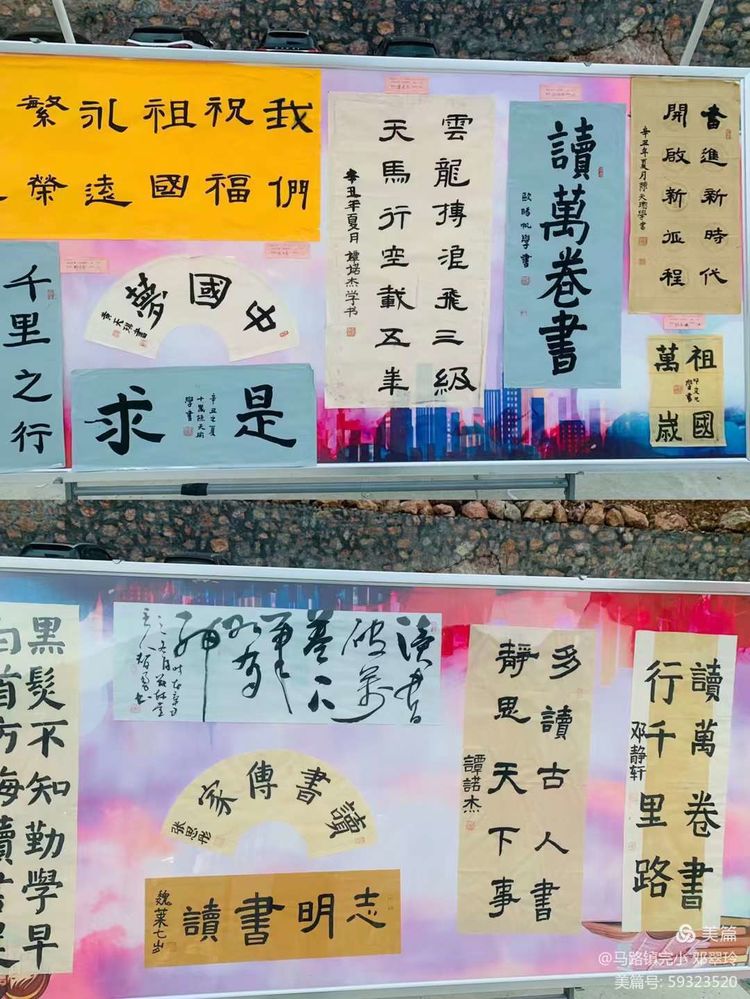 我們
祝福
祖國
永遠
繁榮
千里之行
中國夢
求是
辛丑之夏
學書
雲龍搏浪飛三級
天馬行空載五年
辛丑年夏月 譚诺杰学书
讀萬卷書
學書
奮進新時代
開啟新征程
辛丑年夏月
學書
祖國
萬歲
學書
黑髮不知勤學早
白首方悔讀書遲
读書
破萬
卷下
筆
如有
神
讀書傳家
张思彤
讀書明志
魏莱七岁
多讀古人書
靜思天下事
譚諾杰
讀萬卷書
行千里路
邓静轩
美篇
@马路镇完小 邓翠玲
美篇号: 59323520